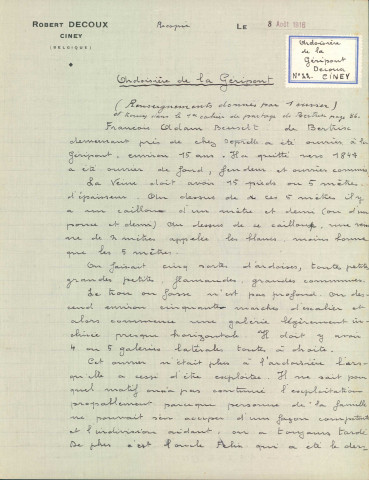 ROBERT DECOUX
CINEY
(BELGIQUE)
Recopié
LE 8 Août 1918
Ardoisière
de la
Géripont
Decoux
N° 22. CINEY
Ardoisière de la Géripont
(Renseignements donnés par 1 ouvrier)
et tenus dans le cahier de partage de Bertrix page 56.
François Adam de Bertrix
demeurant près de chez a été ouvrier à la
Géripont, environ 15 ans. Il a quitté vers 1844
a été ouvrier de fond, fendeur et ouvrier comme
La Veine doit avoir 15 pieds ou 5 mètres
d'épaisseur. Au dessus de ces 5 mètres il y
a un caillou d'un mètre et demi (ou d'un
pouce et demi) Au dessus de ce caillou, une vei
ne de 2 mètres appelée les blancs. moins bonne
que les 5 mètres.
On faisait cinq sortes d'ardoises, toute petite
grandes petites, flamandes, grandes communes.
Le trou ou fosse n'est pas profond. On des-
cend environ cinquante marches d'escalier et
alors commence une galerie légèrement in-
clinée presque horizontale Il doit y avoir
4 ou 5 galeries latérales toute, à droite.
Cet ouvrier n'était plus à l'ardoisière lors-
qu'elle a cessé d'être exploitée. Il ne sait pour
quel motif on n'a pas continué l'exploitation
probablement parceque personne de la famille
ne pouvait s'en occuper d'une façon compétente
et l'indivision aidant, on a toujours tardé
De plus c'est l'oncle Félix qui a été le der-